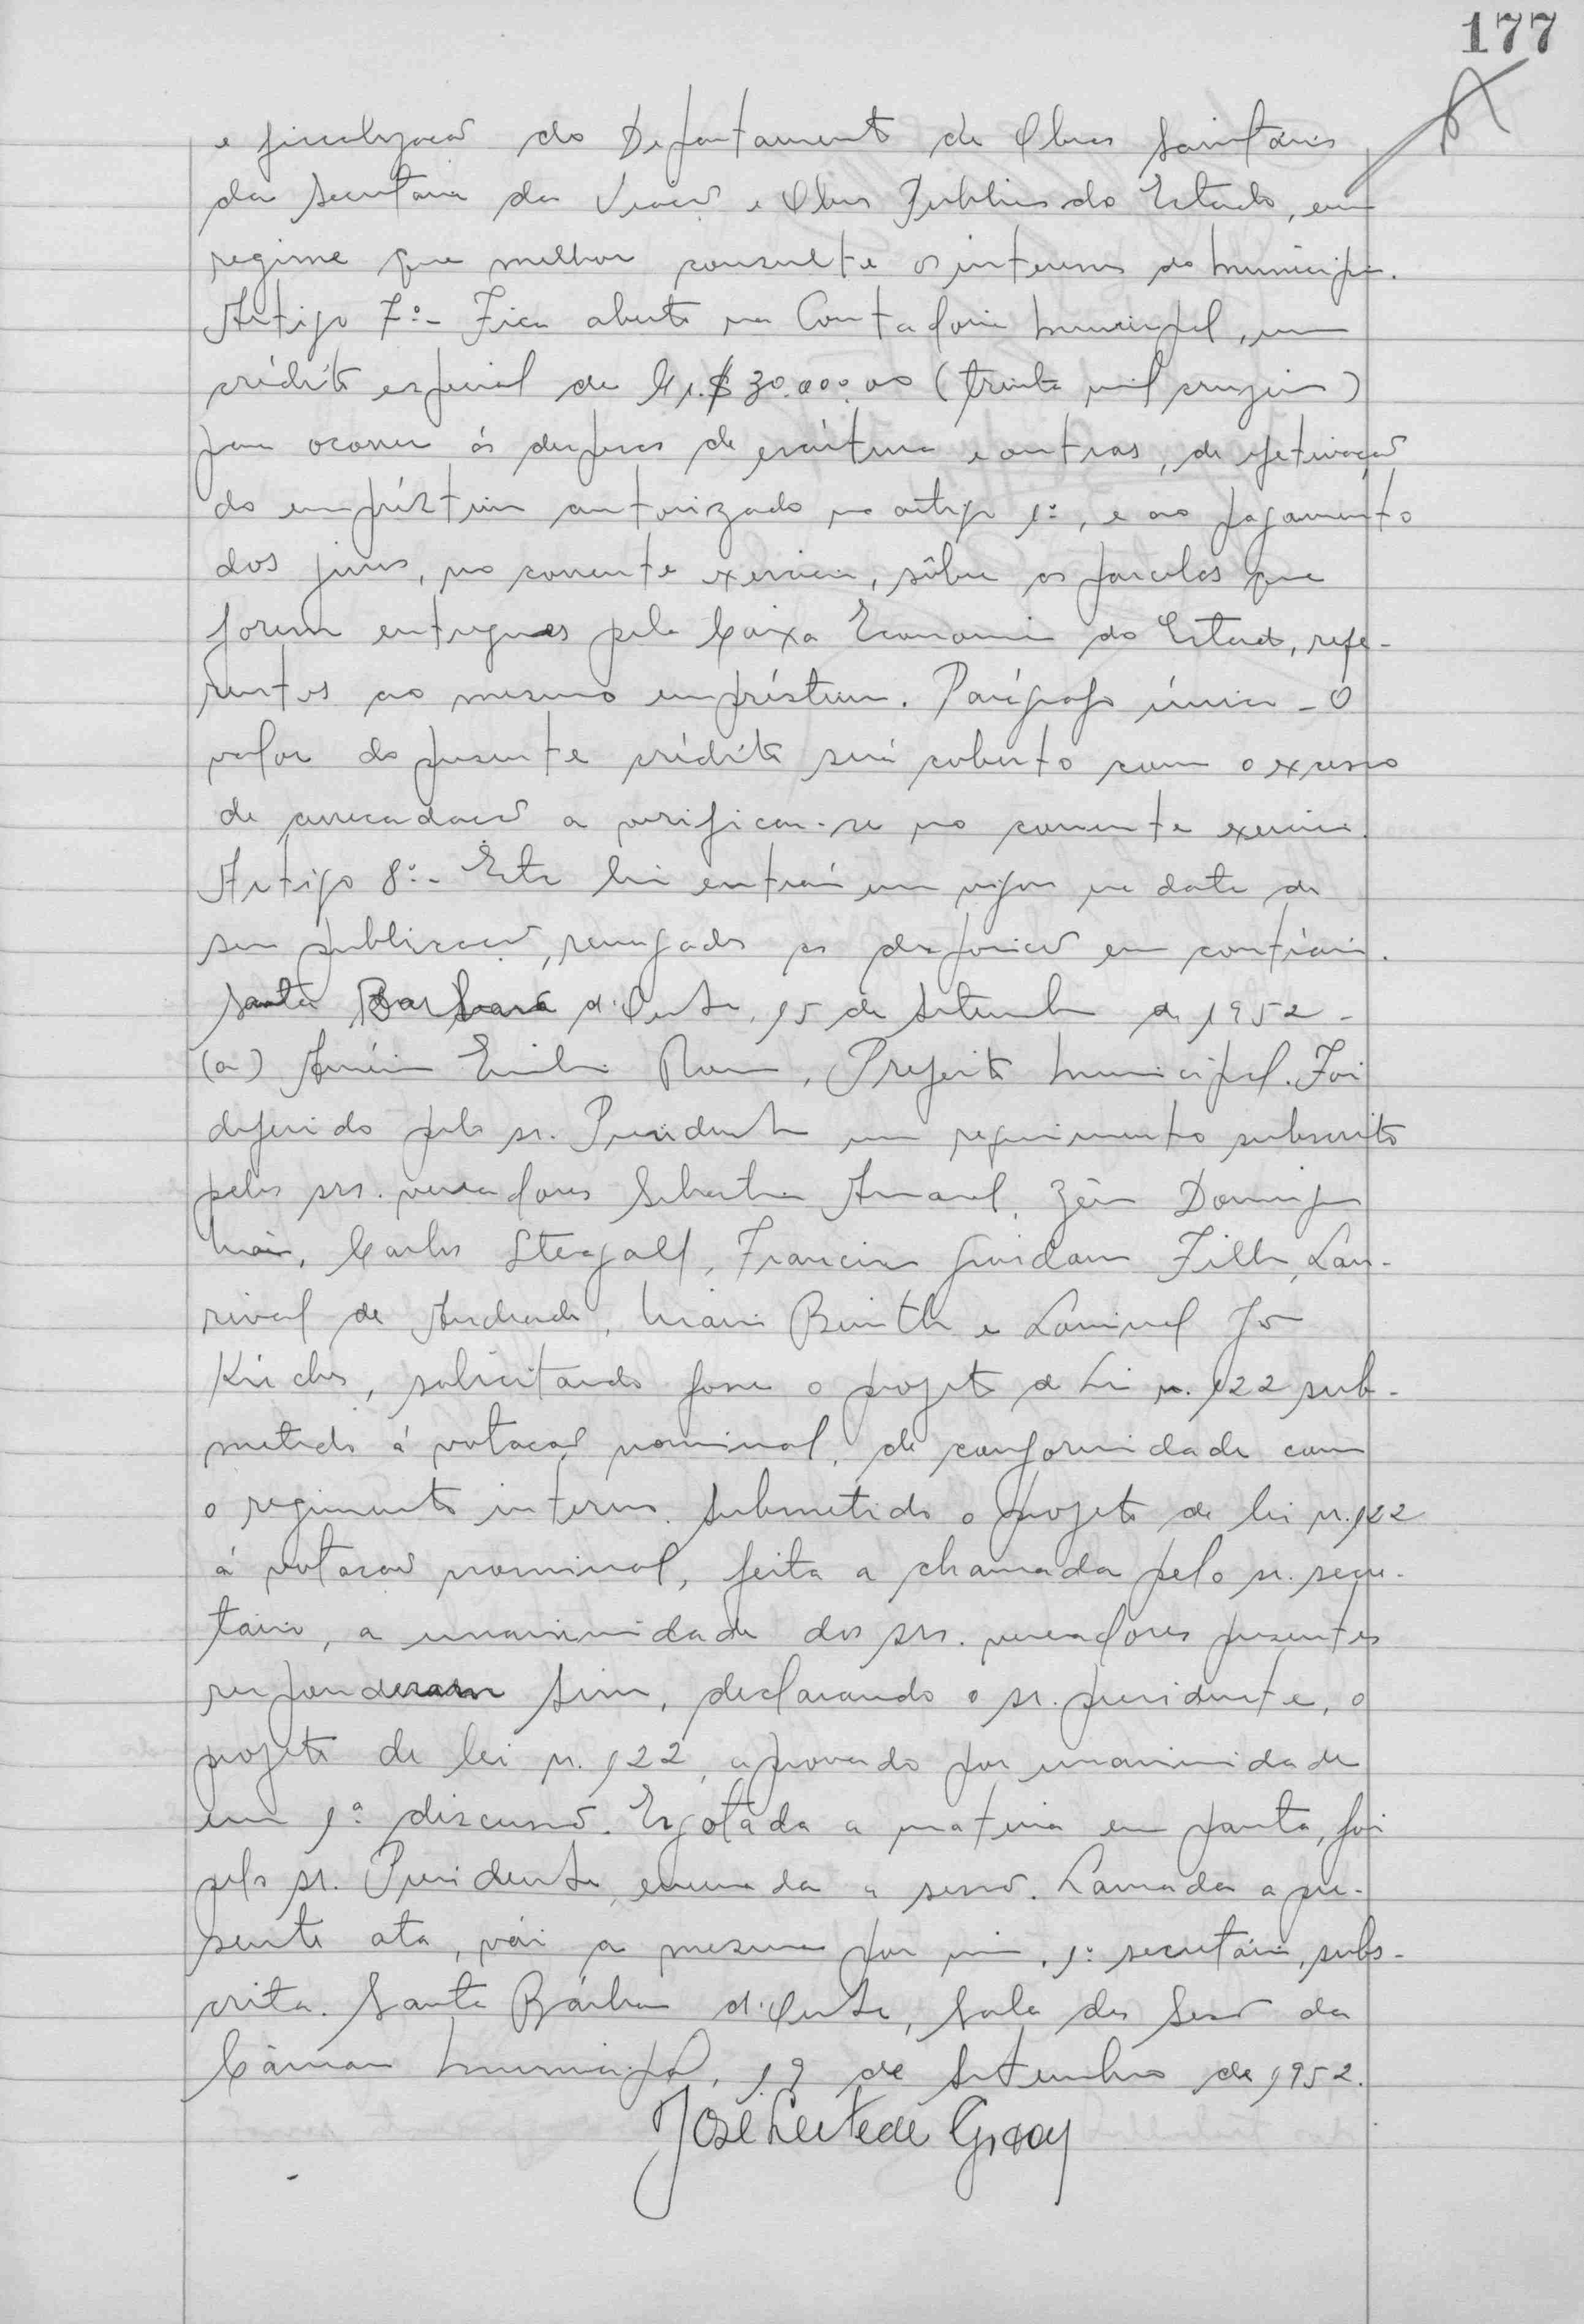 177
e fiscalização do Departamento de Obras Sanitárias
da Secretaria da Viação e Obras Publicas do Estado, em
regime que melhor consulte os interesses do municipio.
Artigo 7º - Fica aberto na Contadoria municipal, um
crédito especial de Cr.$ 30.000,00 (trinta mil cruzeiros)
para ocorrer ás despesas de escritura e outras, de efetivação
do empréstimo autorizado no artigo 1º, e ao pagamento
dos juros, no corrente exercicio, sôbre as parcelas que
forem entregues pela Caixa Economica do Estado, refe-
rentes ao mesmo empréstimo. Parágrafo único - O
valor do presente crédito será coberto com o excesso
de arrecadação a verificar-se no corrente exercicio.
Artigo 8º - Esta lei entrará em vigor na data de
sua publicação, revogadas as disposições em contrário.
Santa Barbara d'Oeste, 15 de Setembro de 1952 -
(a) Emilio, Prefeito municipal. Foi
deferido pelo sr. Presidente um requerimento subscrito
pelos srs. vereadores Sebastião Amaral, Domingos
Carlos Stegall, Francisco Filho, Lou-
rival de Andrade, e
solicitando fosse o projeto de Lei n. 122 sub-
metido á votação nominal, de conformidade com
o regimento interno. Submetido o projeto de lei n. 122
á votação nominal, feita a chamada pelo sr. secre-
tário, a unanimidade dos srs. vereadores presentes
responderam Sim, declarando o sr. presidente, o
projeto de lei n. 122, aprovado por unanimidade
em 1ª discussão. Esgotada a materia em pauta, foi
pelo sr. Presidente, encerrada a sessão. Lavrada a pre-
sente ata, vái a mesma por mim, 1º secretário, subs-
crita. Santa Bárbara d'Oeste, Sala das Sessões da
Câmara Municipal, 19 de Setembro de 1952.
José